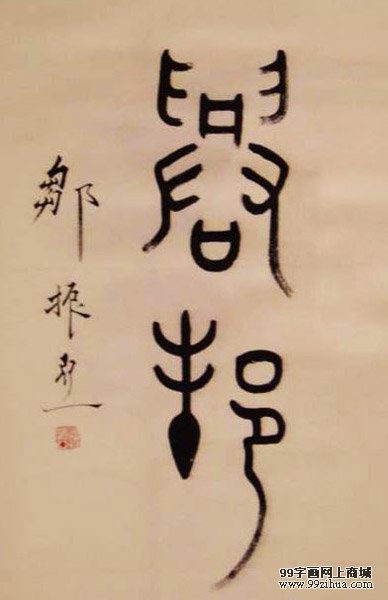 興邦
鄒振亞
99字画网上商城
www.99zihua.com